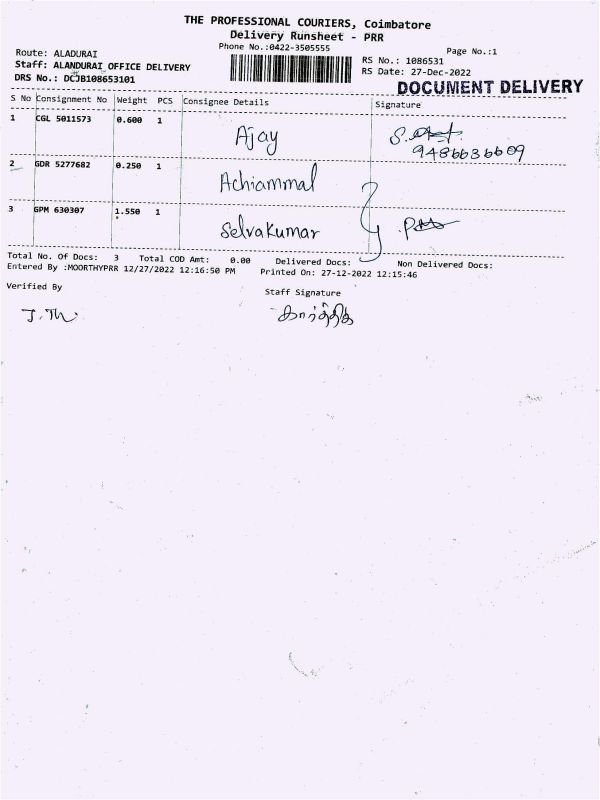 THE PROFESSIONAL COURIERS, Coimbatore
Delivery Runsheet - PRR
Phone No.:0422-3505555
Page No.:1
Route: ALADURAI
Staff: ALANDURAI OFFICE DELIVERY
DRS No.: DCJB108653101
RS No.: 1086531
RS Date: 27-Dec-2022
DOCUMENT DELIVERY
S No Consignment No Weight PCS Consignee Details Signature
1 CGL 5011573 0.600 1 Ajay
9486636609
2 GDR 5277682 0.250 1 Achiammal
3 GPM 630307 1.550 1 Selvakumar
Total No. Of Docs: 3 Total COD Amt: 0.00 Delivered Docs: Non Delivered Docs:
Entered By :MOORTHYPRR 12/27/2022 12:16:50 PM Printed On: 27-12-2022 12:15:46
Verified By
Staff Signature